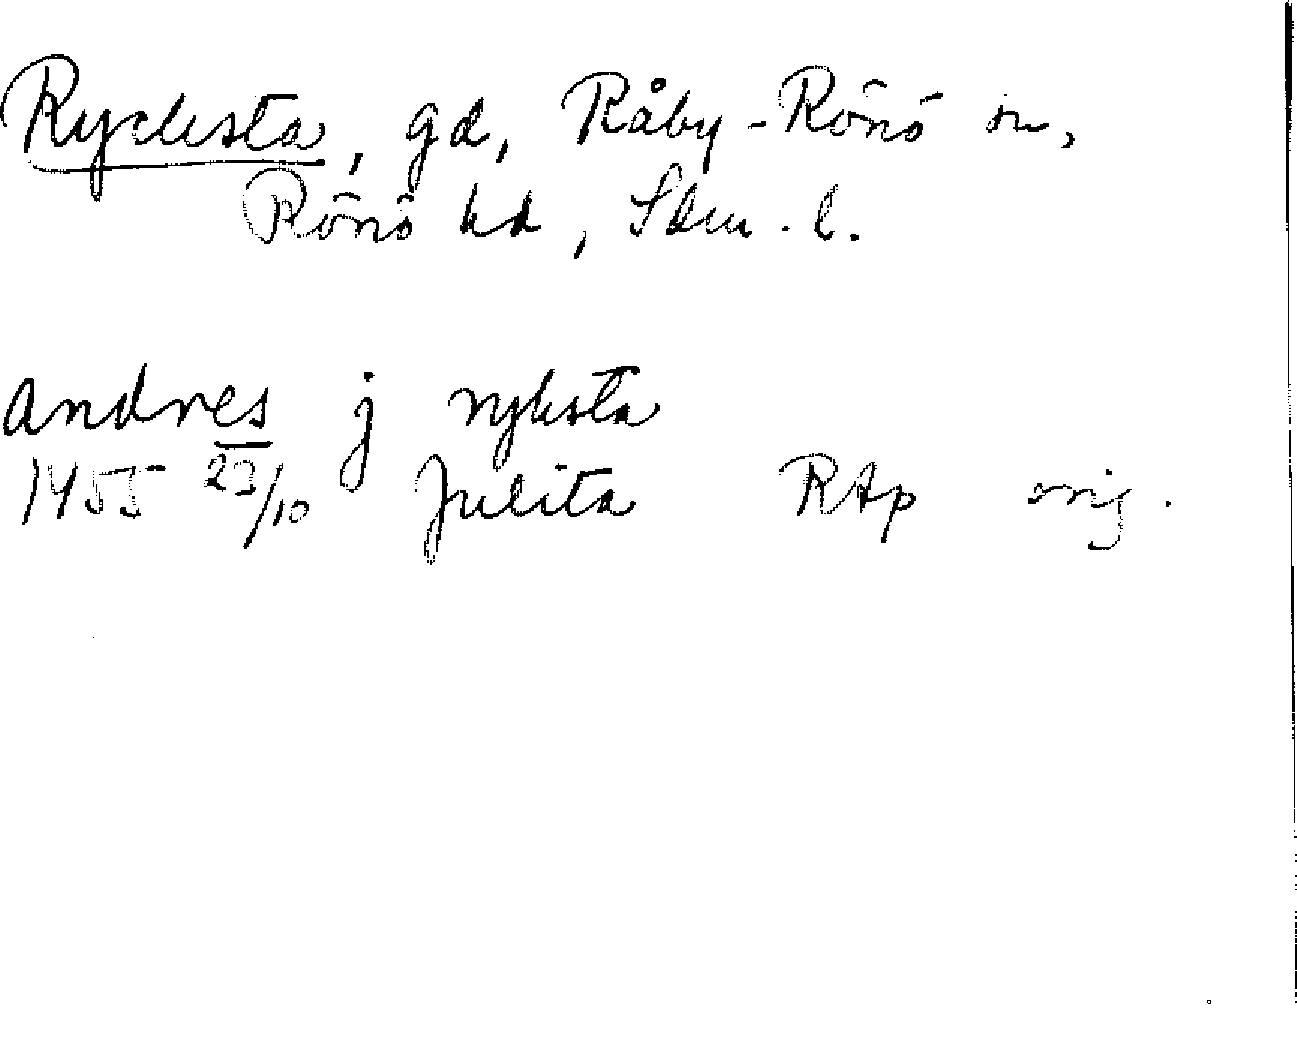 Rycksta, gd, Råby-Rönö sn,
Rönö hd, Sdm. l.
andres j ryksta
1455 23/10 Julita RAp orig.